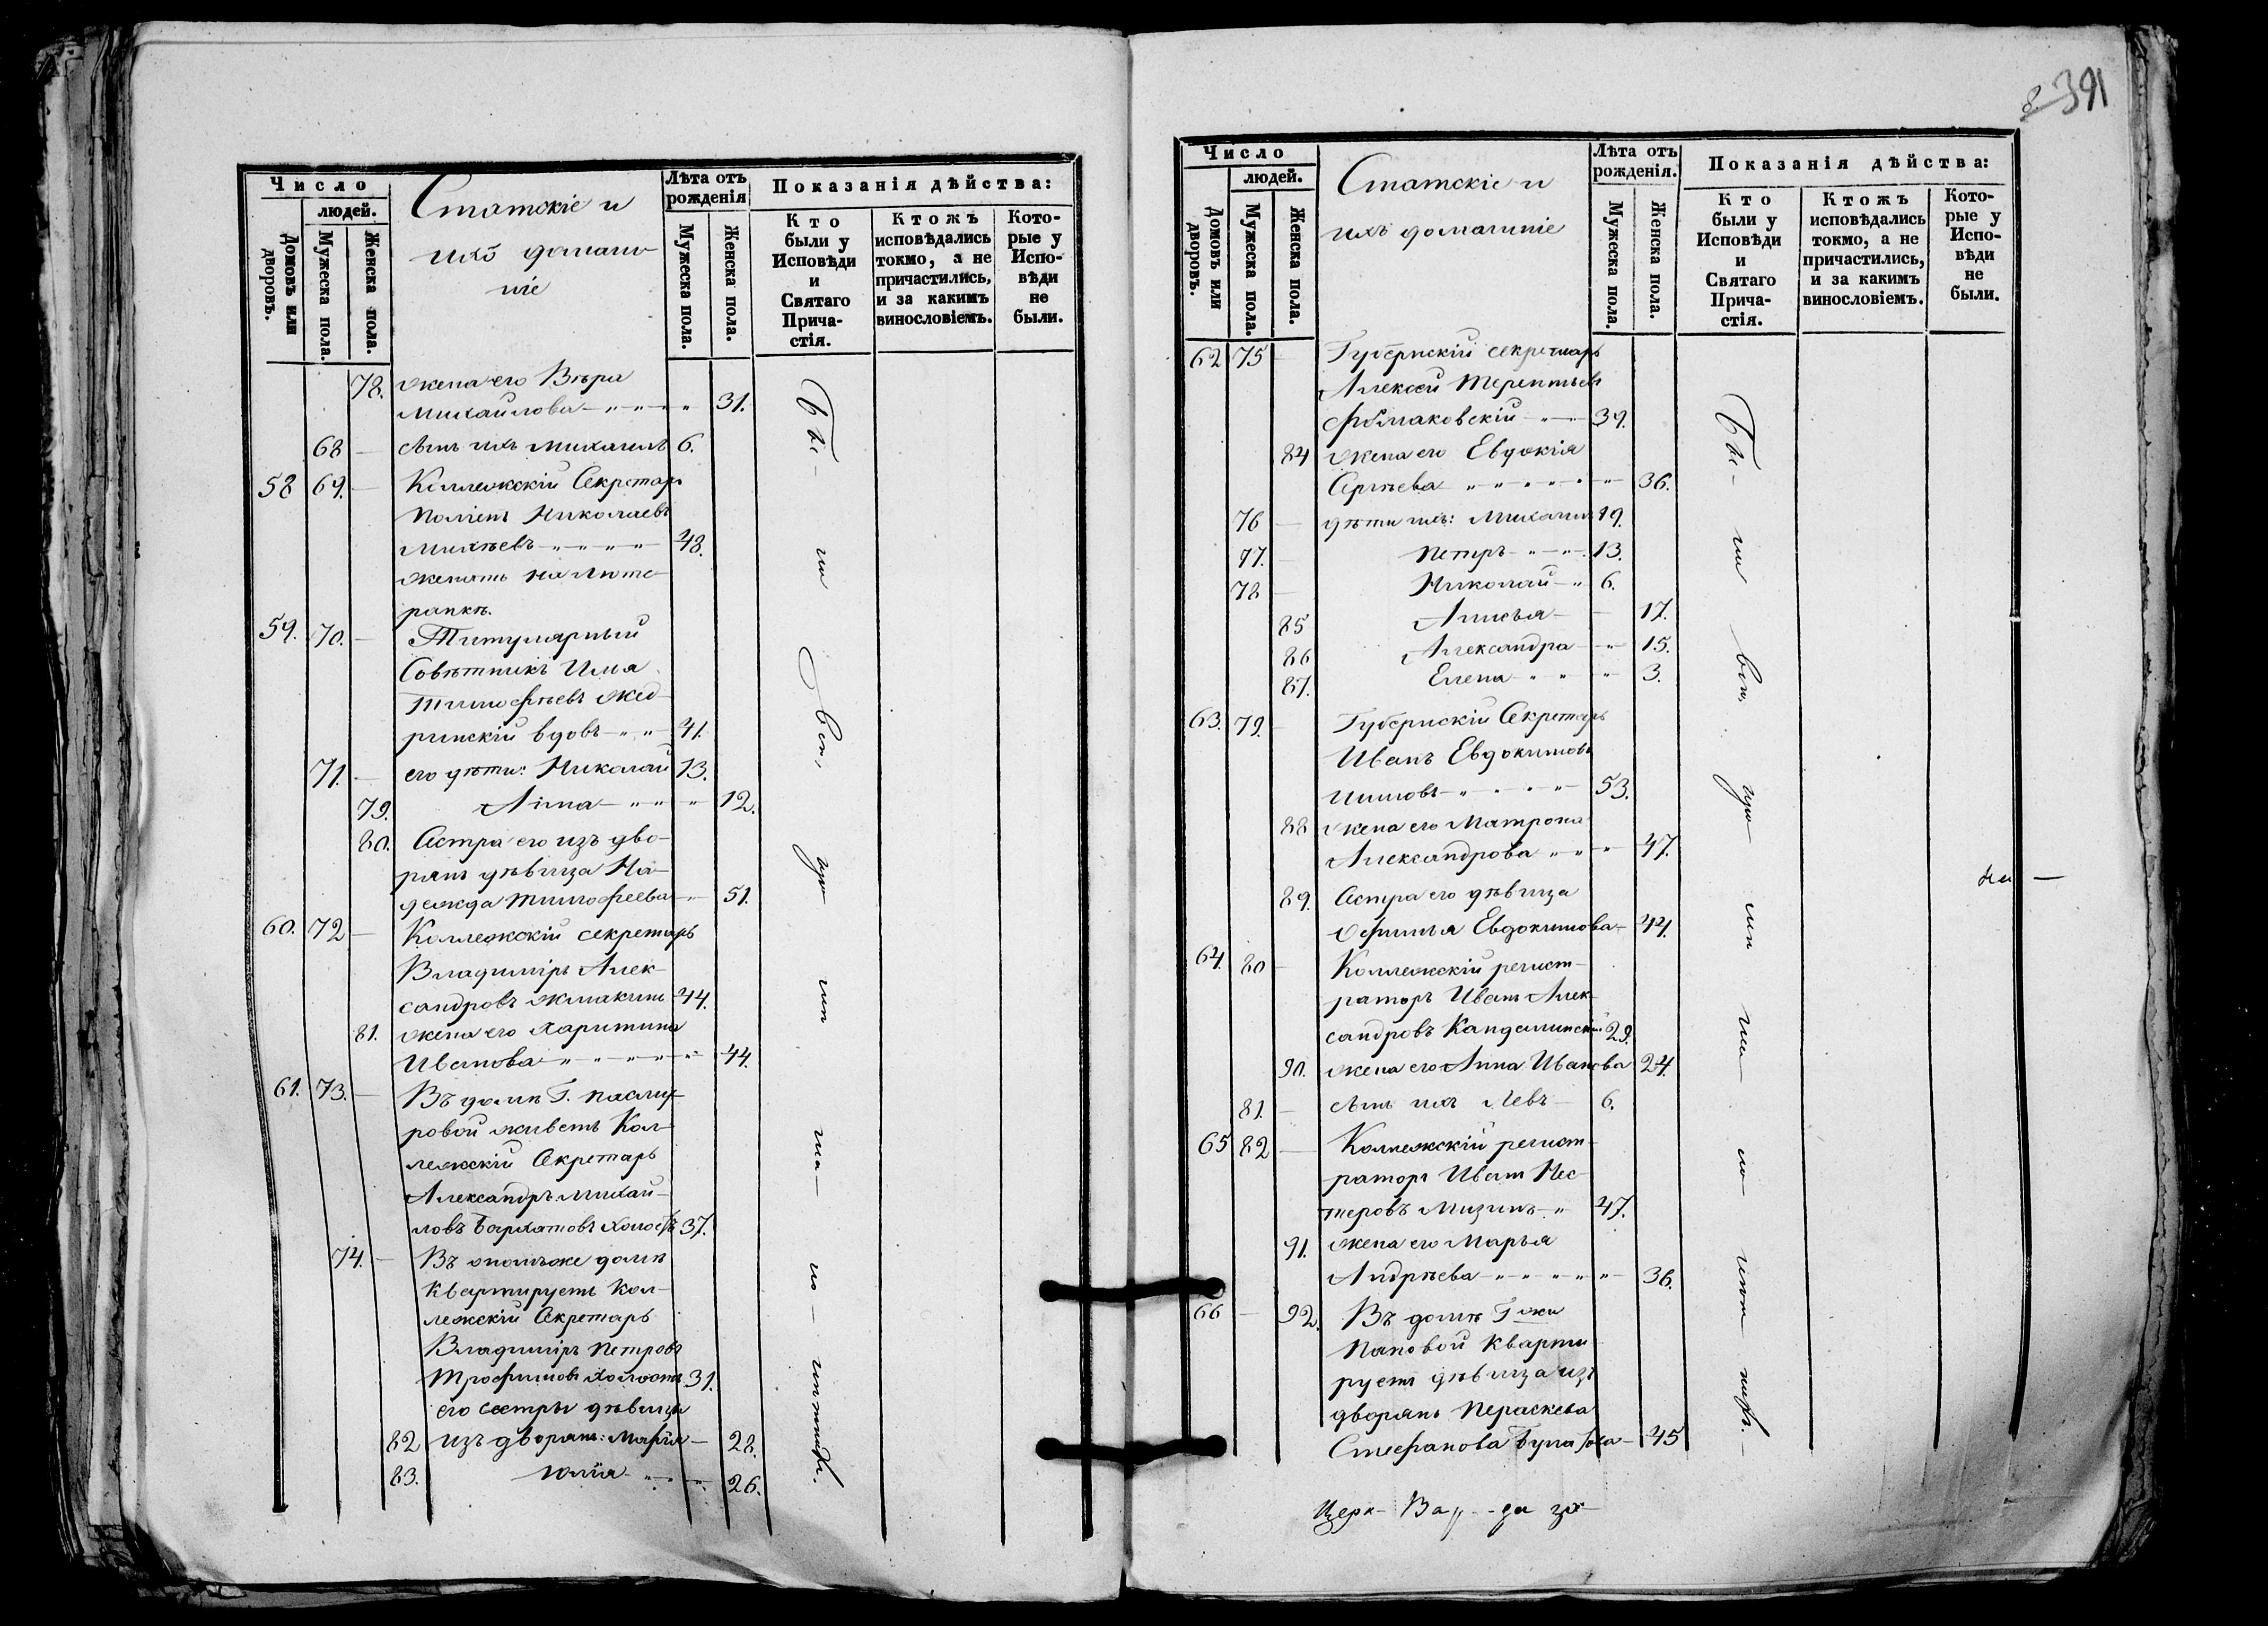 Число
людей.
Домовъ или дворовъ.
Мужеска пола.
Женска пола.
Статскіе и
ихъ домаш-
ніе
Лѣта отъ рожденія
Мужеска пола.
Женска пола.
Показанія дѣйства:
Кто были у Исповѣди и Святаго Прича-стія.
Ктожъ исповѣдались токмо, а не причастились, и за какимъ винословіемъ.
Кото-рые у Испо-вѣди не были.
78. жена его Вѣра
Михайлова 31.
68 — сынъ ихъ Михаилъ 6.
58 69. — Коллежскій Секретарь
Николаевъ
Михѣевъ 48.
женатъ на люте-
ранкѣ.
59. 70. — Титулярный
Совѣтникъ Илья
Тимофѣевъ
вдовъ 41.
71. — его дѣти: Николай 13.
79. Анна 12.
80. Сестра его изъ дво-
рянъ дѣвица На-
дежда Тимофеева 51.
60. 72 — Коллежскій секретарь
Владиміръ Алек-
сандровъ Жмакинъ 44.
81. жена его Харитина
Иванова 44.
61. 73. — Въ домѣ Г.
ровой живетъ Кол-
лежскій Секретарь
Александръ Михай-
ловъ Бархатовъ холостъ 37.
74. — Въ этомъ же домѣ
квартируетъ Кол-
лежскій Секретарь
Владиміръ Петровъ
Трофимовъ холостъ 31.
его сестры дѣвицы
82 изъ дворянъ: Марія — 28.
83. Юлія 26.
Бы-
ли
391
Число
людей.
Домовъ или дворовъ.
Мужеска пола.
Женска пола.
Статскіе и
ихъ домашніе
Лѣта отъ рожденія.
Мужеска пола.
Женска пола.
Показанія дѣйства:
Кто были у Исповѣди и Святаго Прича-стія.
Ктожъ исповѣдались токмо, а не причастились, и за какимъ винословіемъ.
Кото-рые у Испо-вѣди не были.
62 75 — Губернскій секретарь
Алексѣй Терентьевъ
39.
84 жена его Евдокія
Сергѣева 36.
76 — дѣти ихъ: Михаилъ 19.
77. Петръ 13.
78 — Николай 6.
85 Анисья — 17.
86 Александра 15.
87. Елена 3.
63. 79. — Губернскій Секретарь
Иванъ Евдокимовъ
53.
88 жена его Матрона
Александрова 47.
89. Сестра его дѣвица
Евдокимова — 44.
64. 80 — Коллежскій регист-
раторъ Иванъ Алек-
сандровъ Кандалинскій 29.
90. жена его Анна Иванова 24.
81. — сынъ ихъ Левъ — 6.
65 82 — Коллежскій регист-
раторъ Иванъ Нес-
теровъ Мизинъ 47.
91. жена его Марья
Андрѣева 36.
66 — 92. Въ домѣ Г-жи
Пановой кварти-
руетъ дѣвица изъ
дворянъ Параскева
Стефанова — 45
Бы-
ли